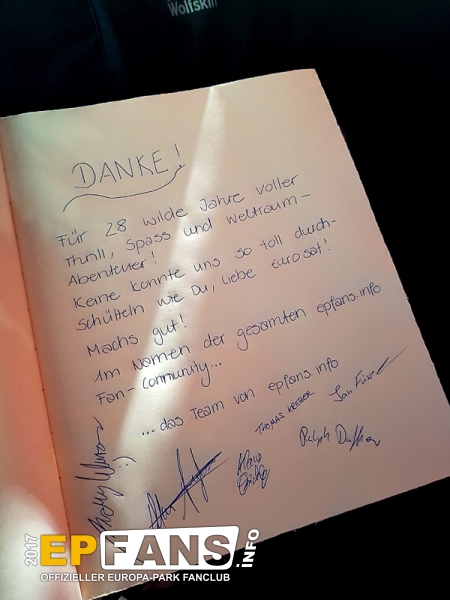 Wolfskin
DANKE!
Für 28 wilde Jahre voller
Thrill, Spass und Weltraum-
Abenteuer!
Keine konnte uns so toll durch-
schütteln wie Du, liebe eurosat!
Machs gut!
Im Namen der gesamten epfans.info
Fan-Community...
...das Team von epfans.info
THOMAS KREBER
Jan
Ralph
2017
EPFANS.INFO
OFFIZIELLER EUROPA-PARK FANCLUB